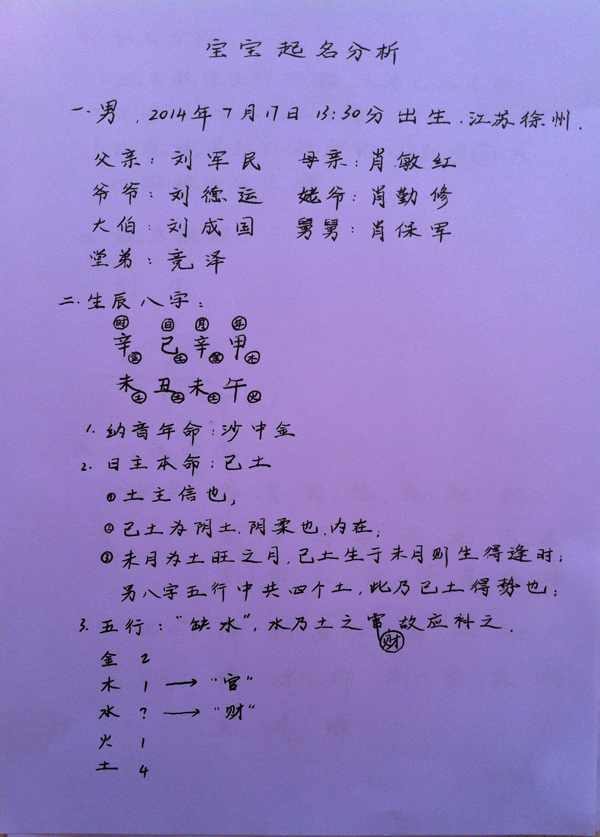 宝宝起名分析
一.男,2014年7月17日 13:30分出生.江苏徐州.
父亲:刘军民 母亲:肖敏红
爷爷:刘德运 姥爷:肖勤修
大伯:刘成国 舅舅:肖保军
堂弟:竞泽
二.生辰八字:
时 日 月 年
辛金 己土 辛金 甲木
未土 丑土 未土 午火
1.纳音年命:沙中金
2.日主本命:己土
①土主信也,
②己土为阴土.阴柔也.内在;
③未月为土旺之月,己土生于未月则生得逢时;
另八字五行中共四个土,此乃己土得势也;
3.五行:"缺水",水乃土之官,故应补之.
财
金 2
木 1 → "官"
水 ? → "财"
火 1
土 4